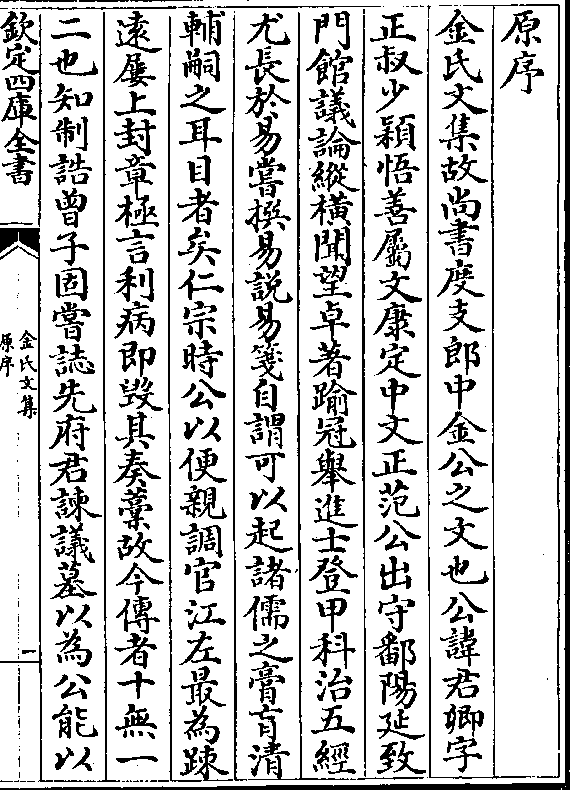 原序
金氏文集故尚書度支郎中金公之文也公諱君卿字
正叔少穎悟善屬文康定中文正范公出守鄱陽延致
門館議論縱橫聞望卓著踰冠舉進士登甲科治五經
尤長於易嘗撰易説易箋自謂可以起諸儒之膏肓清
輔嗣之耳目者矣仁宗時公以便親調官江左最為踈
遠屢上封章極言利病即毀其奏藳故今傳者十無一
二也知制誥曾子固嘗誌先府君諫議墓以為公能以
欽定四庫全書
金氏文集
原序
一